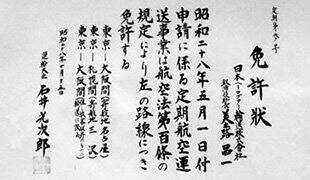 免許状
日本ヘリコプター輸送株式会社
取締役社長 美土路昌一
昭和二十八年五月一日付
申請に係る定期航空運
送事業は航空法第百条の
規定により左の路線につき
免許する
東京―大阪間(寄航地名古屋)
東京―札幌間(寄航地三沢)
東京―大阪間
昭和二十八年十月十五日
運輸大臣 石井光次郎